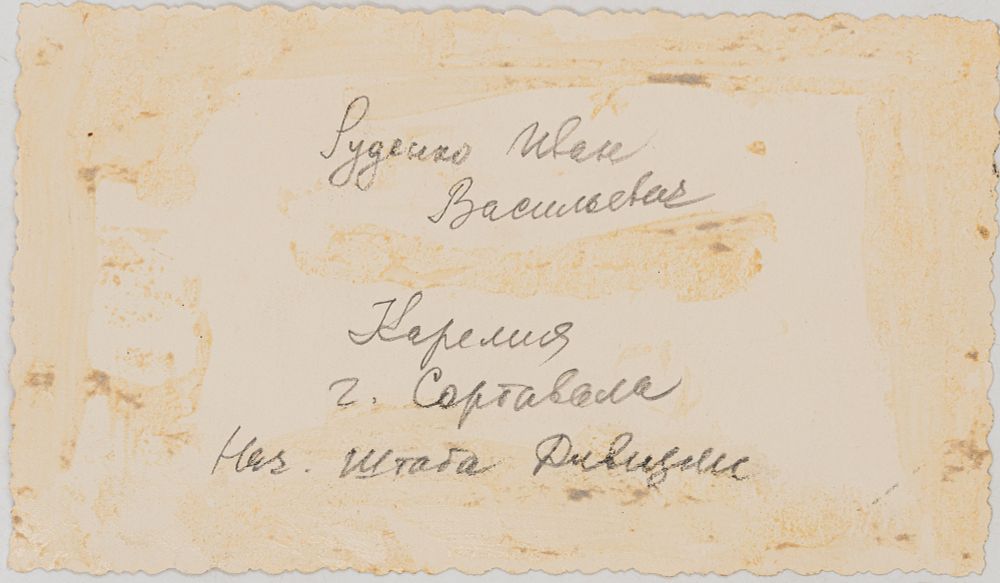 Руденко Иван
Васильевич
Карелия
г. Сортавала
Нач. штаба Дивизии